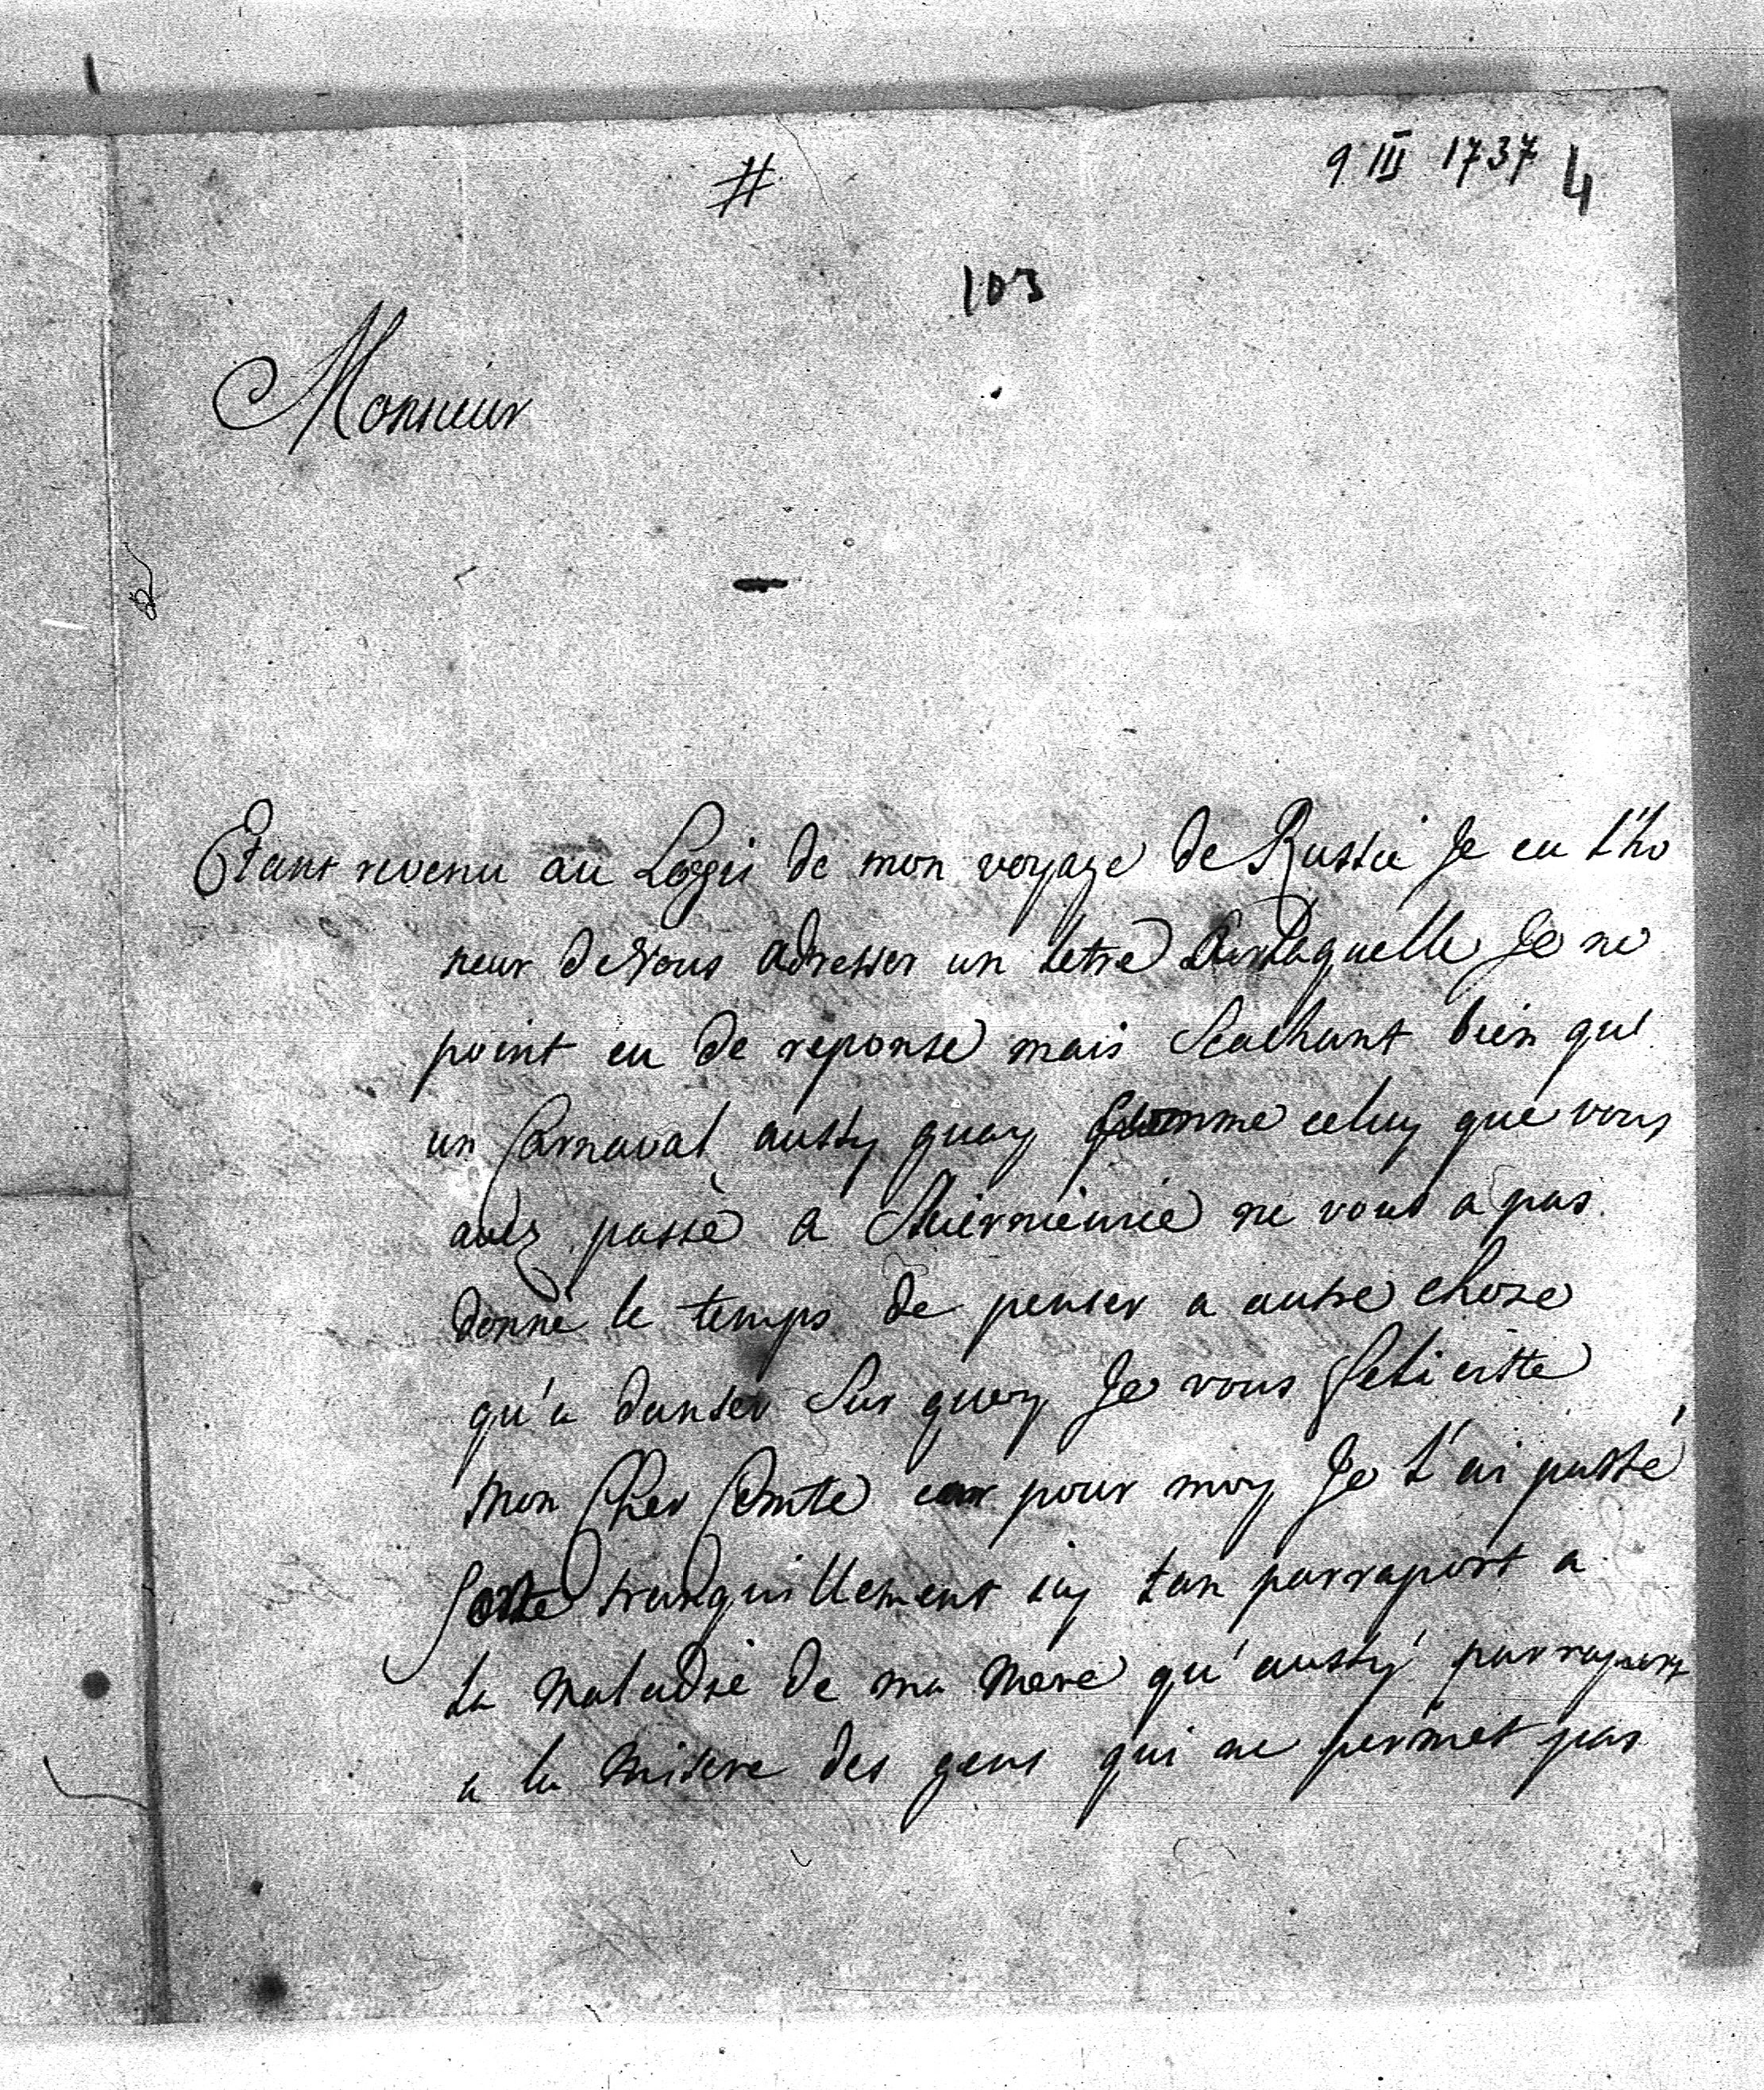 #
9 III 1737 4
103
Monsieur
Etant revenu au Logis de mon voyage de Russie Je eu l'ho
neur de vous adresser un letre Sur laquelle Je ne
point eu de reponse mais Scachant bien que
un Carnaval aussy guay comme celuy que vous
avez passè a Skiernieviè ne vous a pas
donné le temps de penser a autre chose
qu'a danser Sur quoy Je vous felicitte
mon Cher Comte car pour moy Je l'ai passé
forte tranquillement icy tan parraport a
la maladie de ma mere qu'aussy parraport
a la misere des gens qui ne permet pas